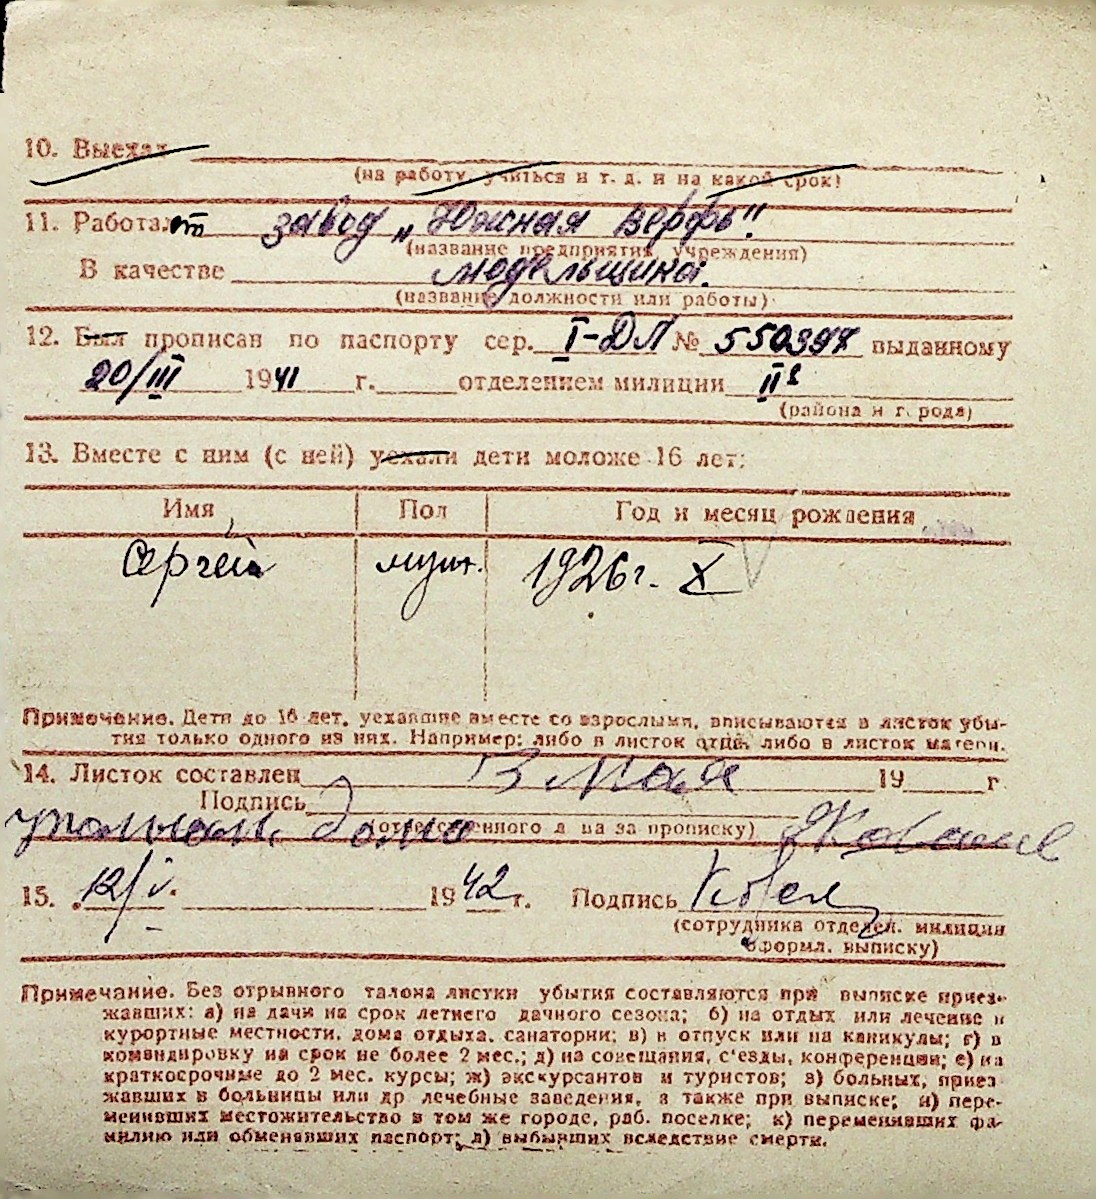 10. Выехал
(на работу, учиться и т. д. и на какой срок)
11. Работает завод „Южная верфь".
(название предприятия, учреждения)
В качестве модельщика.
(название должности или работы)
12. Был прописан по паспорту сер. I-ДЛ № 550397 выданному
20/III 1941 г. отделением милиции II
(района и города)
13. Вместе с ним (с ней) уехали дети моложе 16 лет:
Имя Пол Год и месяц рождения
Сергей муж. 1926 г. X
Примечание. Дети до 16 лет, уехавшие вместе со взрослыми, вписываются в листок убы-
тия только одного из них. Например: либо в листок отца, либо в листок матери.
14. Листок составлен 3 мая 19 г
Подпись
дома (ответственного л-ца за прописку)
15. 12/V. 1942 г. Подпись
(сотрудника отделен. милиции
оформл. выписку)
Примечание. Без отрывного талона листки убытия составляются при выписке приез-
жавших: а) на дачи на срок летнего дачного сезона; б) на отдых или лечение в
курортные местности, дома отдыха, санатории; в) в отпуск или на каникулы; г) в
командировку на срок не более 2 мес.; д) на совещания, с'езды, конференции; е) на
краткосрочные до 2 мес. курсы; ж) экскурсантов и туристов; з) больных, приез
жавших в больницы или др лечебные заведения, а также при выписке; и) пере-
менивших местожительство в том же городе, раб. поселке; к) переменивших фа-
милию или обменявших паспорт; л) выбывших вследствие смерти.